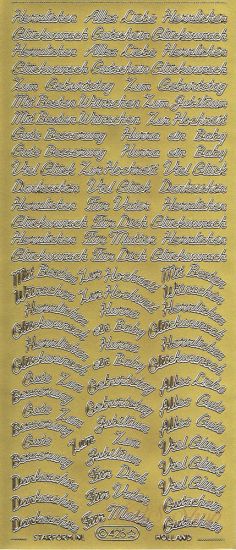 Herzlichen Alles Liebe Herzlichen
Glückwunsch Gutschein Glückwunsch
Herzlichen Alles Liebe Herzlichen
Glückwunsch Gutschein Glückwunsch
Zum Geburtstag Zum Geburtstag
Mit Besten Wünschen Zum Jubiläum
Mit Besten Wünschen Zum Hochzeit
Gute Besserung Hurra ein Baby
Gute Besserung Hurra ein Baby
Viel Glück Zur Hochzeit Viel Glück
Dankeschön Viel Glück Dankeschön
Herzlichen Für Vater Herzlichen
Glückwunsch Für Dich Glückwunsch
Herzlichen Für Mutter Herzlichen
Glückwunsch Für Dich Glückwunsch
Mit Besten Zur Hochzeit Mit Besten
Wünschen Zur Hochzeit Wünschen
Herzlichen Hurra Herzlichen
Glückwunsch ein Baby Glückwunsch
Herzlichen Hurra Herzlichen
Glückwunsch ein Baby Glückwunsch
Gute Zum Geburtstag Alles Liebe
Besserung Zum Geburtstag Alles Liebe
Gute Zum Jubiläum Viel Glück
Besserung Zum Jubiläum Viel Glück
Dankeschön Für Dich Gute
Dankeschön Für Vater Besserung
Dankeschön Für Mutter Gutschein
STARFORM NL 425 HOLLAND